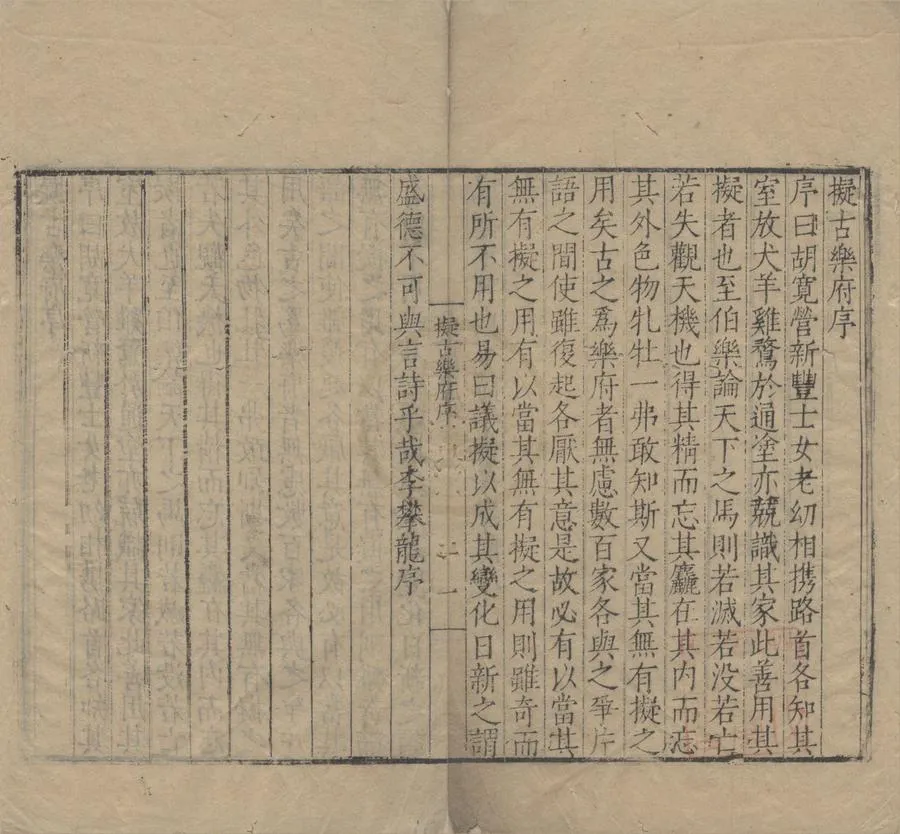 擬古樂府序
序曰胡寬營新豐士女老幼相携路首各知其
室放犬羊雞鶩於通塗亦競識其家此善用其
擬者也至伯樂論天下之馬則若滅若没若亡
若失觀天機也得其精而忘其麤在其内而忘
其外色物牝牡一弗敢知斯又當其無有擬之
用矣古之爲樂府者無慮數百家各與之爭片
語之間使雖復起各厭其意是故必有以當其
無有擬之用有以當其無有擬之用則雖奇而
有所不用也易曰議擬以成其變化日新之謂
擬古樂府序
一
盛德不可與言詩乎哉李攀龍序